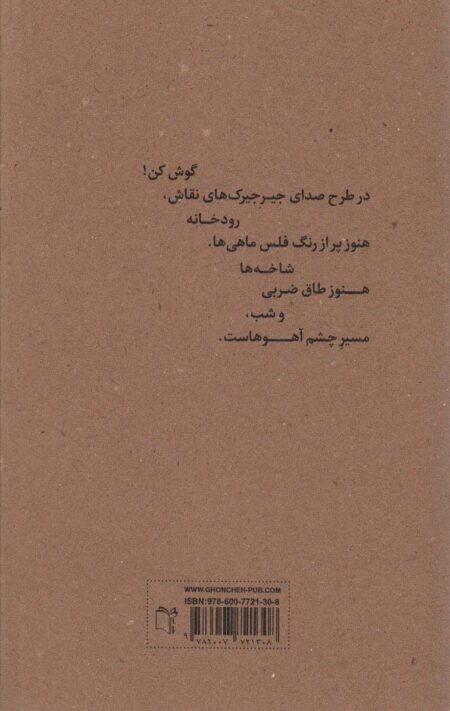 گوش کن!
در طرح صدای جیرجیرک‌های نقاش،
رودخـانه
هنوز پر از رنگ فلس ماهی‌ها.
شاخـه‌ها
هـــنوز طاق ضربی
و شب،
مسیرِ چشم آهـــوهاست.
WWW.GHONCHEH-PUB.COM
ISBN:978-600-7721-30-8
9 786007 721308